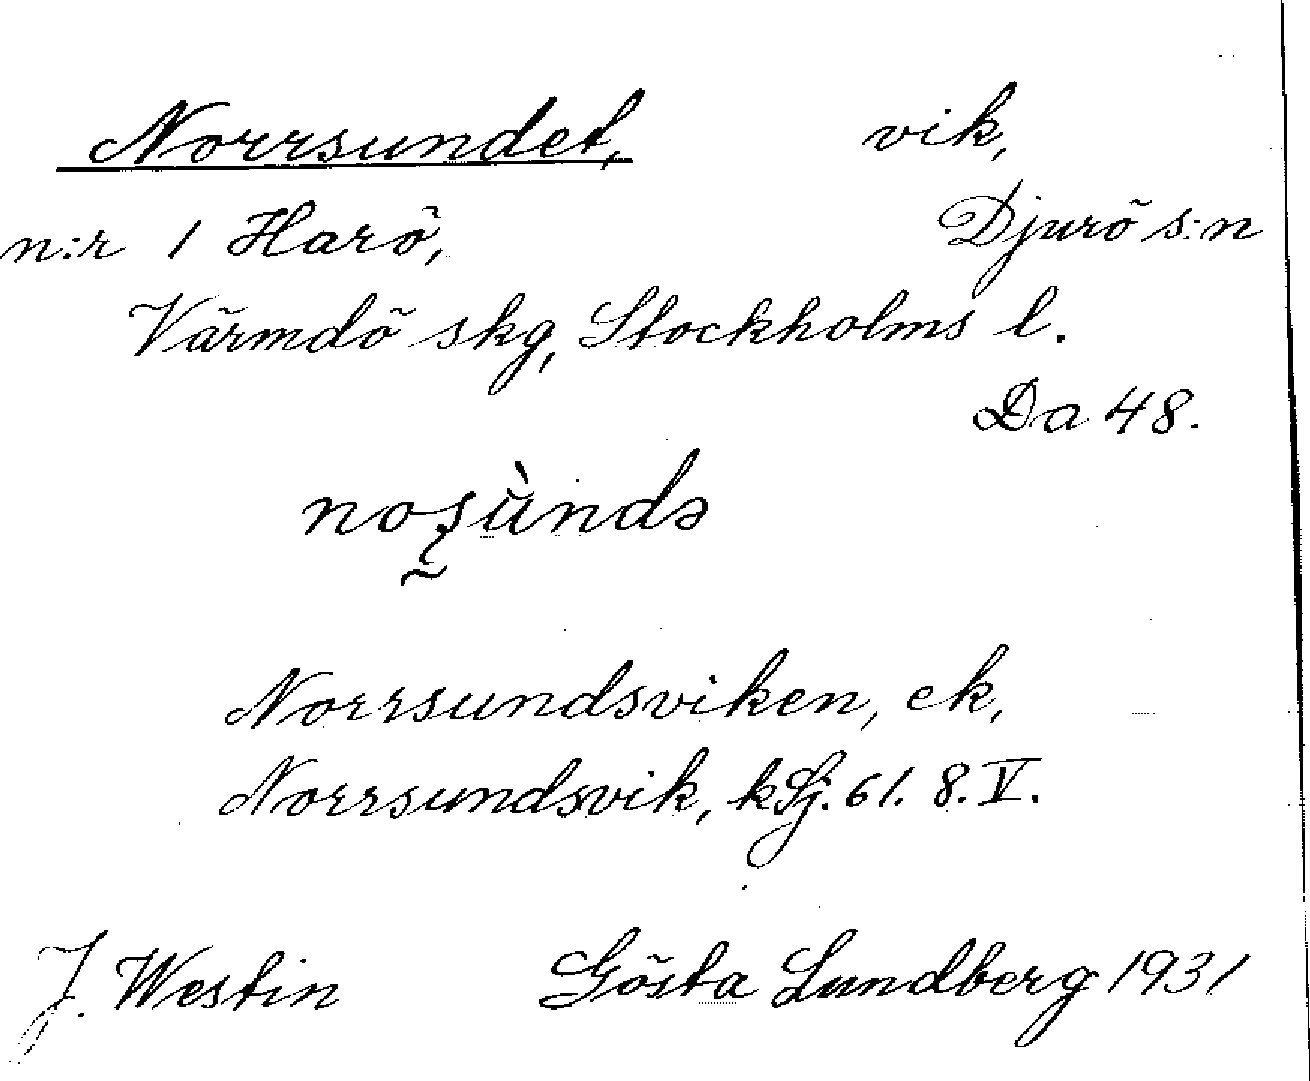 Norrsundet, vik,
n:r 1 Harö, Djurö s:n
Värmdö skg, Stockholms l.
Da 48.
Norrsundsviken, ek,
Norrsundsvik, kSj. 61. 8. V.
J. Westin Gösta Lundberg 1931